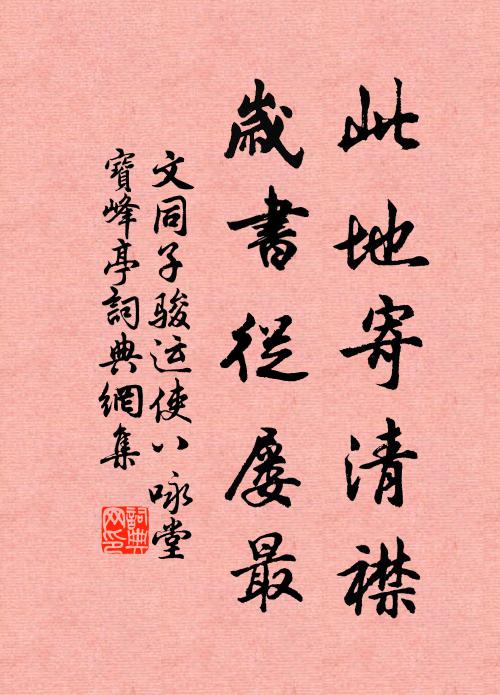 此地寄清襟
歲書從屢最
文同子駿運使八咏堂
寶峰亭詞典網集
詞典網印